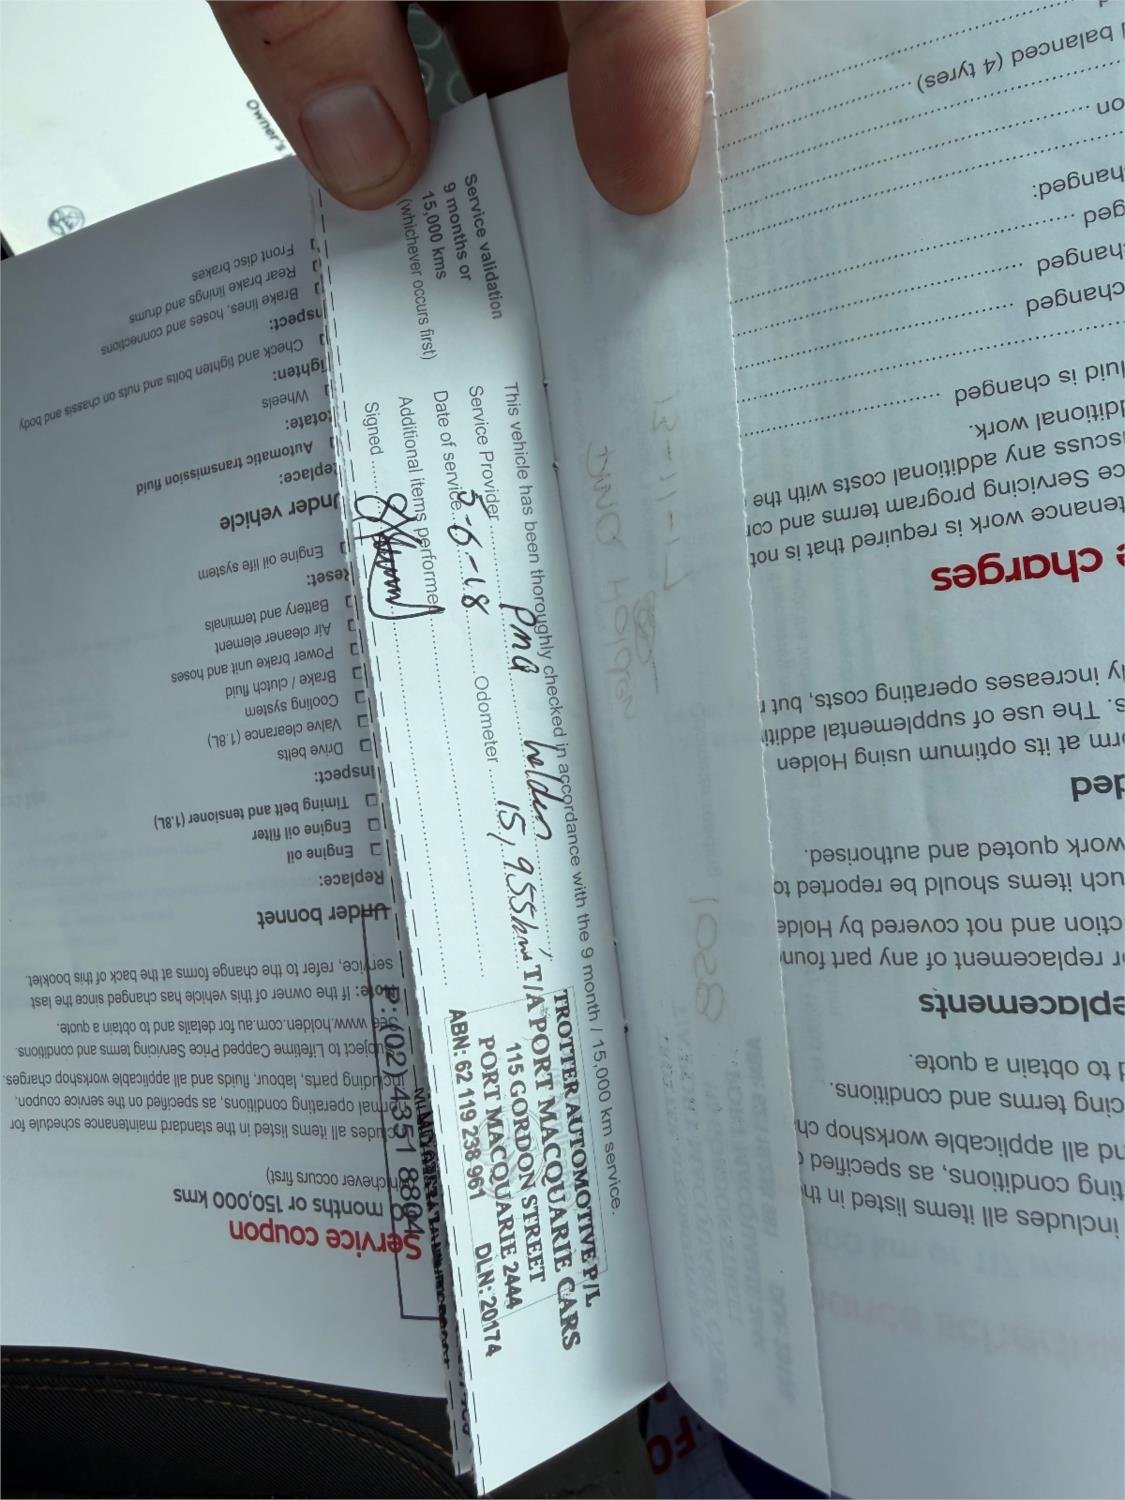 Owner's
Service validation
9 months or
15,000 kms
(whichever occurs first)
This vehicle has been thoroughly checked in accordance with the 9 month / 15,000 km service.
Service Provider Pma holden
Date of service 5-6-18 Odometer 15,955kms
Additional items performed
Signed
TROTTER AUTOMOTIVE P/L
T/A PORT MACQUARIE CARS
115 GORDON STREET
PORT MACQUARIE 2444
ABN: 62 119 238 961 DLN: 20174
P: (02) 4351 8804
Service coupon
months or 150,000 kms
ichever occurs first)
cludes all items listed in the standard maintenance schedule for
ormal operating conditions, as specified on the service coupon,
including parts, labour, fluids and all applicable workshop charges.
subject to Lifetime Capped Price Servicing terms and conditions.
see www.holden.com.au for details and to obtain a quote.
ote: If the owner of this vehicle has changed since the last
service, refer to the change forms at the back of this booklet.
Under bonnet
Replace:
Engine oil
Engine oil filter
Timing belt and tensioner (1.8L)
Inspect:
Drive belts
Valve clearance (1.8L)
Cooling system
Brake / clutch fluid
Power brake unit and hoses
Air cleaner element
Battery and terminals
Reset:
Engine oil life system
Under vehicle
Replace:
Automatic transmission fluid
Rotate:
Wheels
ighten:
Check and tighten bolts and nuts on chassis and body
nspect:
Brake lines, hoses and connections
Rear brake linings and drums
Front disc brakes
13-11-17
1088
includes all items listed in th
ting conditions, as specified
nd all applicable workshop ch
cing terms and conditions.
d to obtain a quote.
eplacements
or replacement of any part foun
ction and not covered by Holde
uch items should be reported to
work quoted and authorised.
ded
orm at its optimum using Holden
s. The use of supplemental additi
ly increases operating costs, but
e charges
tenance work is required that is not
ce Servicing program terms and cor
scuss any additional costs with the
dditional work.
luid is changed
changed
changed
ged
hanged:
on
d balanced (4 tyres)